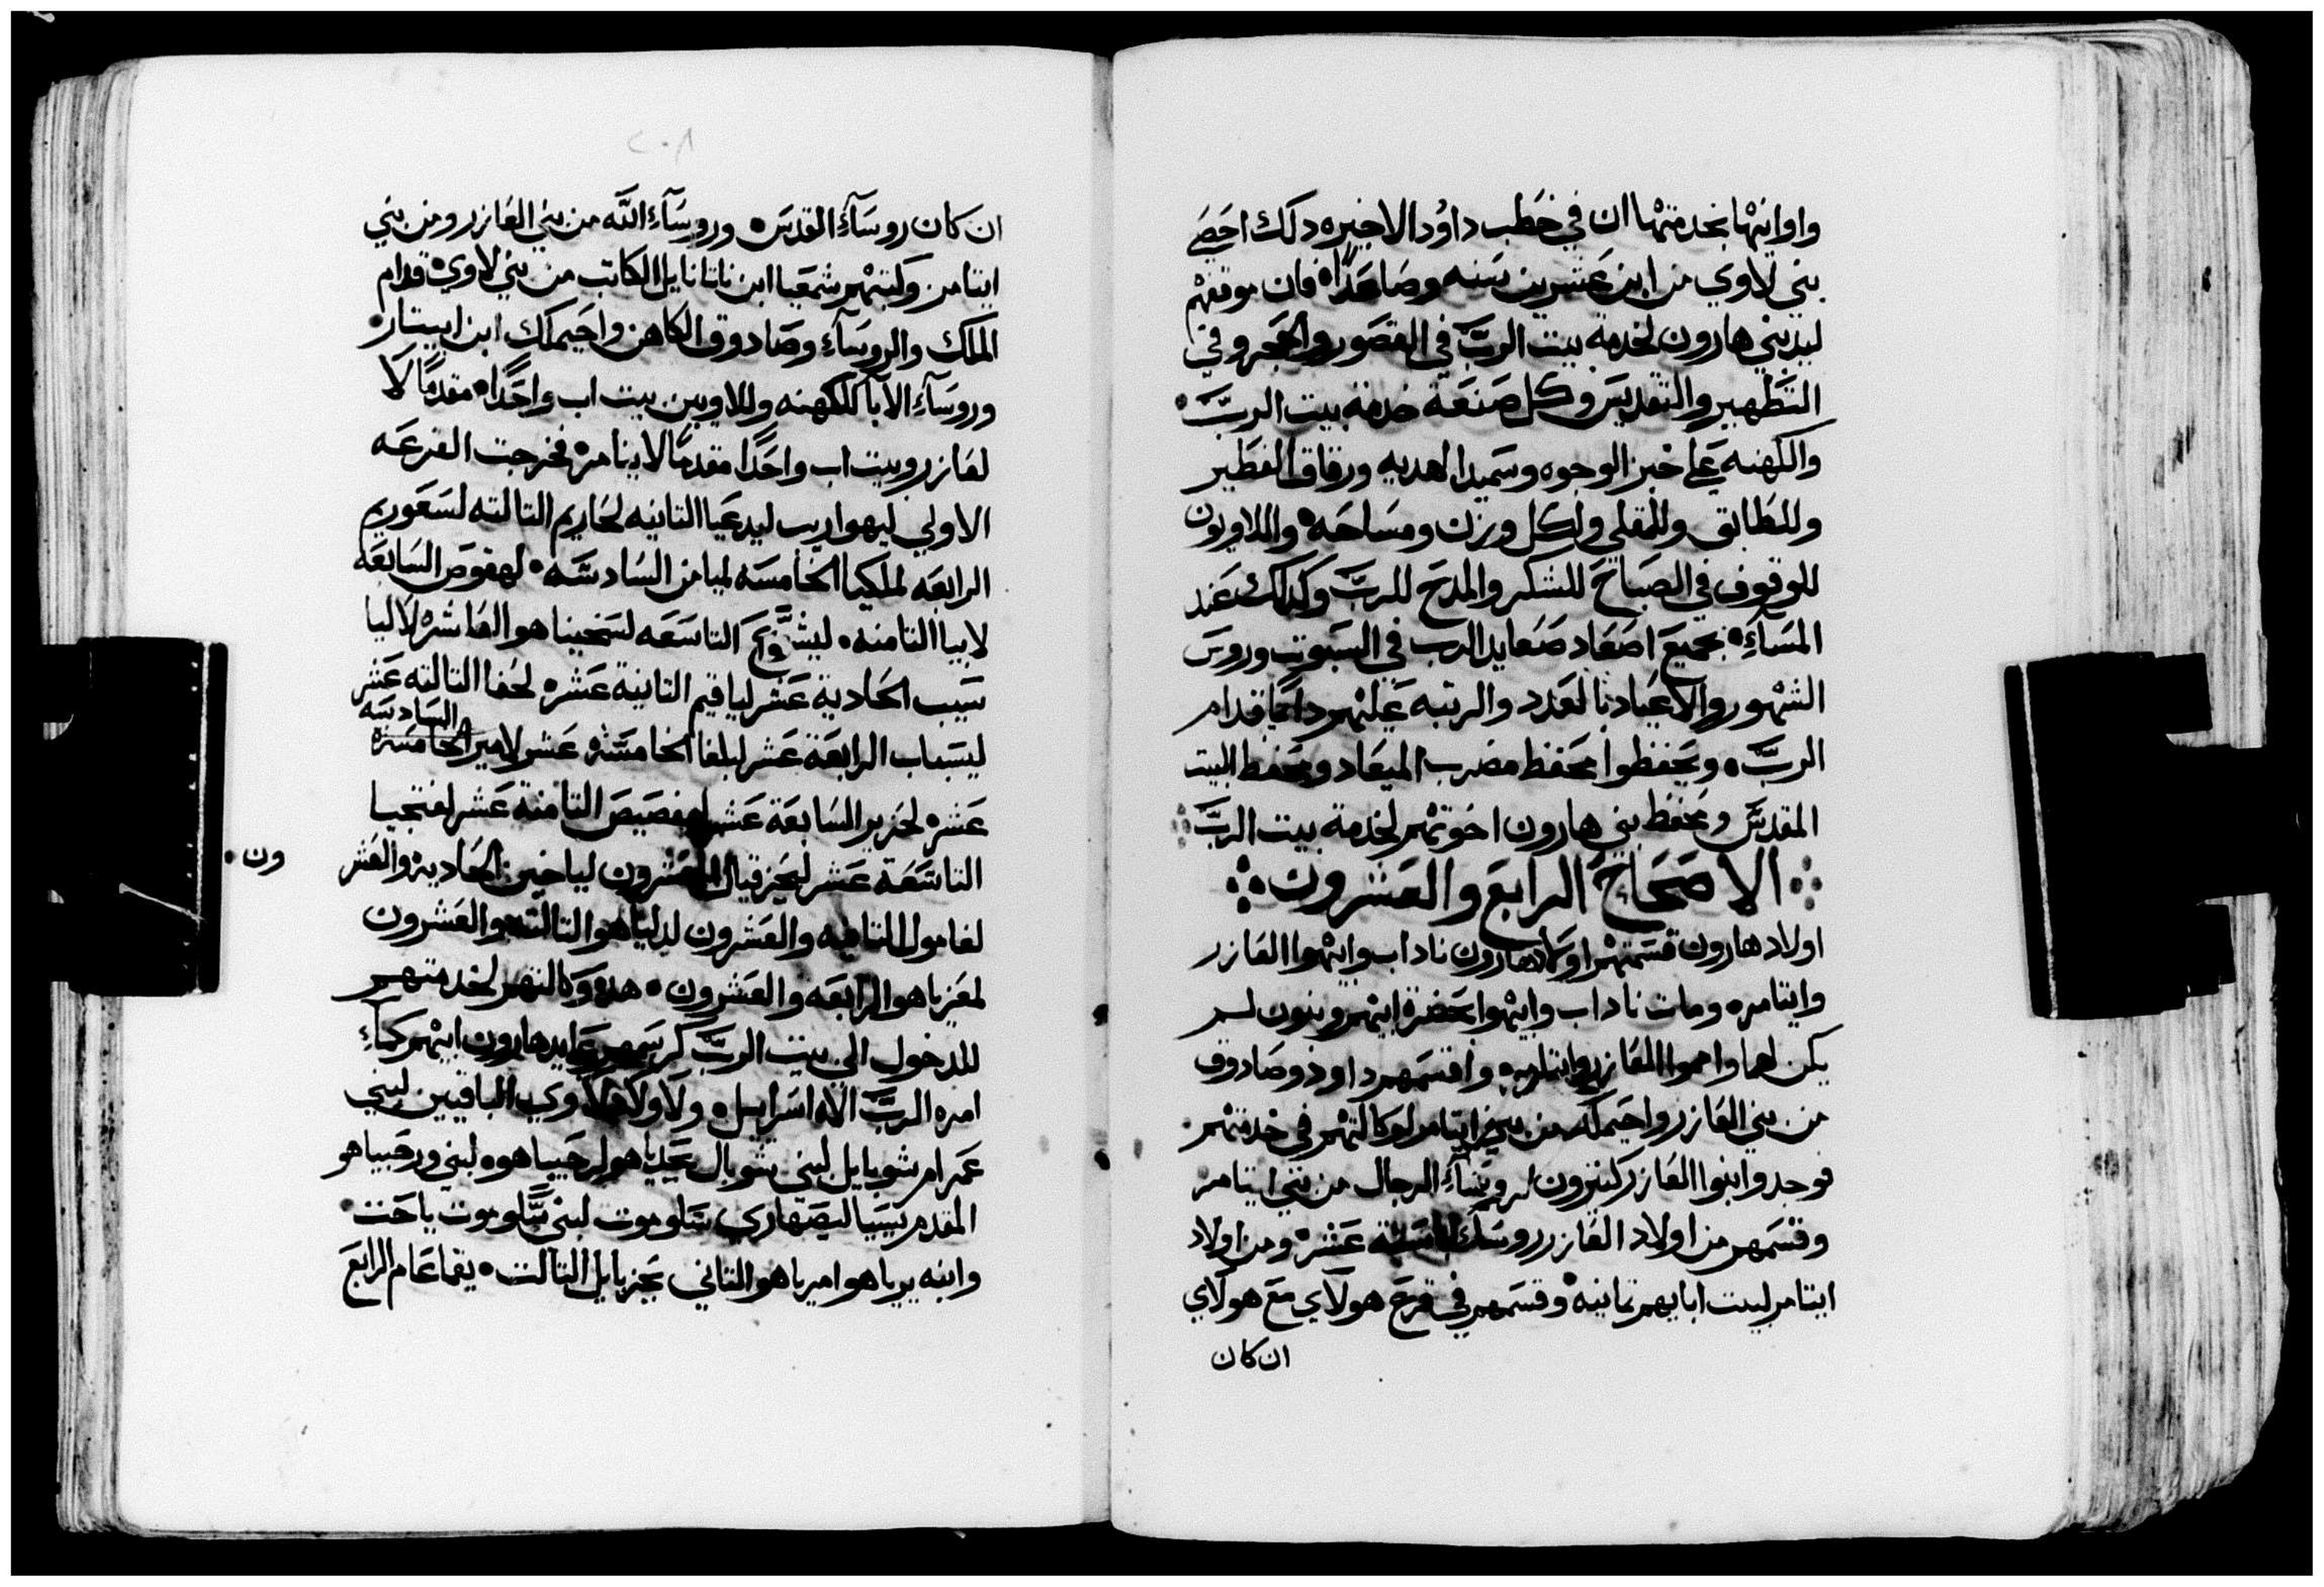 واوانيها بخدمتها ان في خطب داوُد الاخيره دلك احصَي
بني لاوي من ابن عشرين سَنه وصَاعَدًا فان موقفهم
ليد بني هارون لخدمة بيت الربَّ في القصَور والحجر وفي
التَطهير والتقديسَ وكل صَنعَة خدمة بيت الربَّ
والكهنه عَلي خبز الوجوه وسَميد الهديه ورقاق الفطير
وللطَابق وللمقلي ولكل وزن ومسَاحَه واللاويون
للوقوف في الصَباحَ للشكر والمدحَ للربَّ وكدلك عَند
المسَآءِ بجميعَ اصعَاد صَعايد الرب في السَبوت وروسَ
الشهور والاعَياد بالعَدد والرتبه عَليهم دايمًا قدام
الربَّ ويحَفظوا محَفظ مضرب الميعَاد ومحَفظ البيت
المقدسَّ ومحَفظ بني هارون اخوتهم لخدمة بيت الربَّ
الاصَحَاحَ الرابعَ والعَشرون
اولاد هارون قسَمتهم اولاد هارون ناداب وابيهوا العَازر
وايتامر ومات ناداب وابيهوا بحَضرة ابيهم وبنون لم
يكن لهما وامهوا العَازر وايتامر وقسَمهم داوذ وصَادوق
من بني العَازر واحَيملك من بني ايتامر لوكالتهم في خدمتهم
فوجدوا بنوا العَازر كتيرون لروسَآءِ الرجال من بني ايتامر
وقسَمهم من اولاد العَازر روسَآء ستة عَشر ومن اولاد
ايتامر لبيت ابايهم تمانيه وقسَمهم في قرعَ هولاي مَعَ هولاي
ان كان
٢٠٨
ان كان روسَآءِ القدسَ وروسَآءِ اللَّه من بني العَازر ومن بني
ايتامر وكتبهم شمعَيا ابن ناتانايل الكاتب من بني لاوي قدام
الملك والروسَآءِ وصَادوق الكاهن واحَيملك ابن ابيتار
وروسَآءِ الآبا للكهنه وللاويين بيت اب واحَدًا مقدمًا لا
لعَازر وبيت اب واحَدًا مقدمًا لايتامر فخرجت القرعَه
الاولي ليهواريب ليدعَيا التانيه لحَاريم التالته لسَعَوريم
الرابعَه لملكيا الخامسَه لميامن السَادسَه لهقوصَ السَابعَه
لابيا التامنه ليشوَعَ التاسَعَه لسَخينا هو العَاشره لاليا
سَيب الحَادية عَشر لياقيم التانية عَشره لحَفا التالته عَشر
السَادسَه
ليسَباب الرابعَة عَشر لبلغا الخامسَة عَشر لامير الخامسَة
عَشره لحَزير السَابعَة عَشر لهفصَيصَ التامنة عَشر لفتحيا
التاسَعَة عَشر ليحَزقيال العَشرون لياخين الحَاديه والعَشر
ون
لغامول التانيه والعَشرون لدلياهو التالته والعَشرون
لمعَزياهو الرابعَه والعَشرون هده وكالتهم لخدمتهم
للدخول الي بيت الربَّ كرسَمهم عَايد هارون ابيهم كمآءِ
امره الربَّ الاه اسَراييل ولاولاد لاوي الباقيين لبني
عَمرام شوبايل لبني شوبال يحَدياهو لرحَبياهوه لبني ورحَبياهو
المقدم يَسيا ليصَهاري سَلوموت لبني سَلوموت ياحَت
وابنه يرياهو امرياهو التاني يحَزيايل التالت يقماعَام الرابعَ